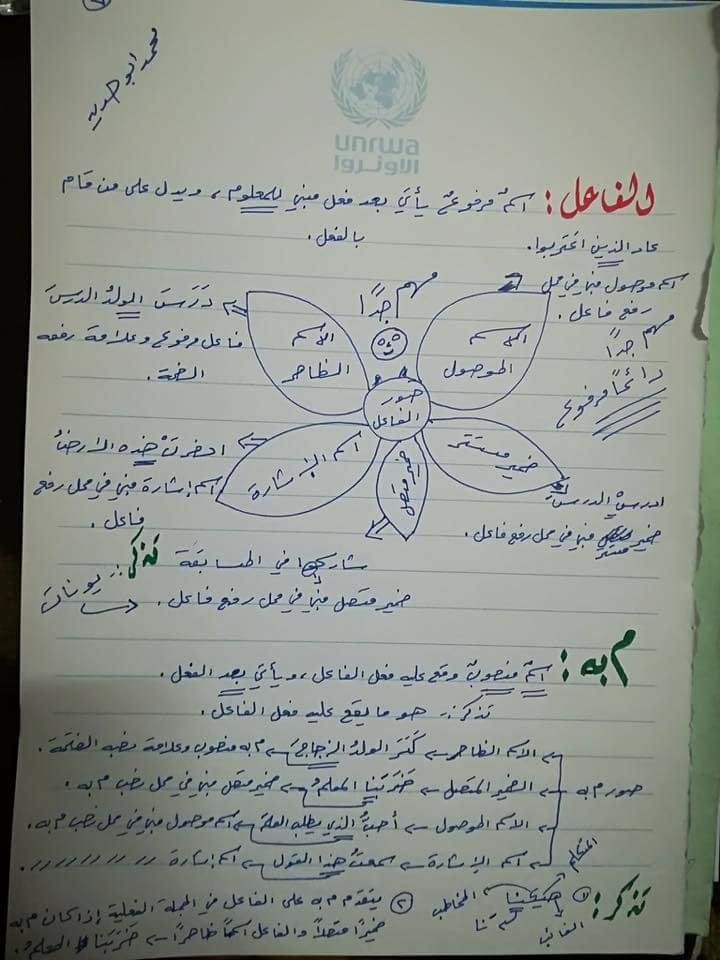 محمد ابو حدىه
unrwa
الأونروا
الفاعل: اسمٌ مرفوعٌ يأتي بعد فعل مبني للمعلوم، ويدل على من قام
بالفعل.
عاد الذين اغتربوا.
اسم موصول مبني في محل
رفع فاعل.
مهم جدًا
دائمًا مرفوع
مهم جدًا
دَرَسَ الولدُ الدرسَ
فاعل مرفوع وعلامة رفعه
الضمة.
الاسم الظاهر
الاسم الموصول
صور الفاعل
اسم الإشارة
ضمير متصل
ضمير مستتر
اخضرتْ هذه الأرضُ
اسم إشارة مبني في محل رفع
فاعل.
ادرسْ الدرسَ
ضمير مستتر مبني في محل رفع فاعل.
شاركوا في المسابقة
ضمير متصل مبني في محل رفع فاعل.
تذكر:
م به: اسمٌ منصوبٌ وقع عليه فعل الفاعل، ويأتي بعد الفعل.
تذكر: هو ما يقع عليه فعل الفاعل.
صور م به
الاسم الظاهر ← كَسَرَ الولدُ الزجاجَ ← م به منصوب وعلامة نصبه الفتحة.
الضمير المتصل ← ضَرَبَنا المعلمُ ← ضمير متصل مبني في محل نصب م به.
الاسم الموصول ← أحبُّ الذي يطلب العلمَ ← اسم موصول مبني في محل نصب م به.
اسم الإشارة ← سمعتُ هذا القول ← اسم إشارة رر رر رر رر.
تذكر: ١
المتكلم
المخاطب
الغائب
٢ يتقدم م به على الفاعل في الجملة الفعلية إذا كان م به
ضميرًا متصلًا والفاعل اسمًا ظاهرًا ← ضَرَبَنا المعلمُ.